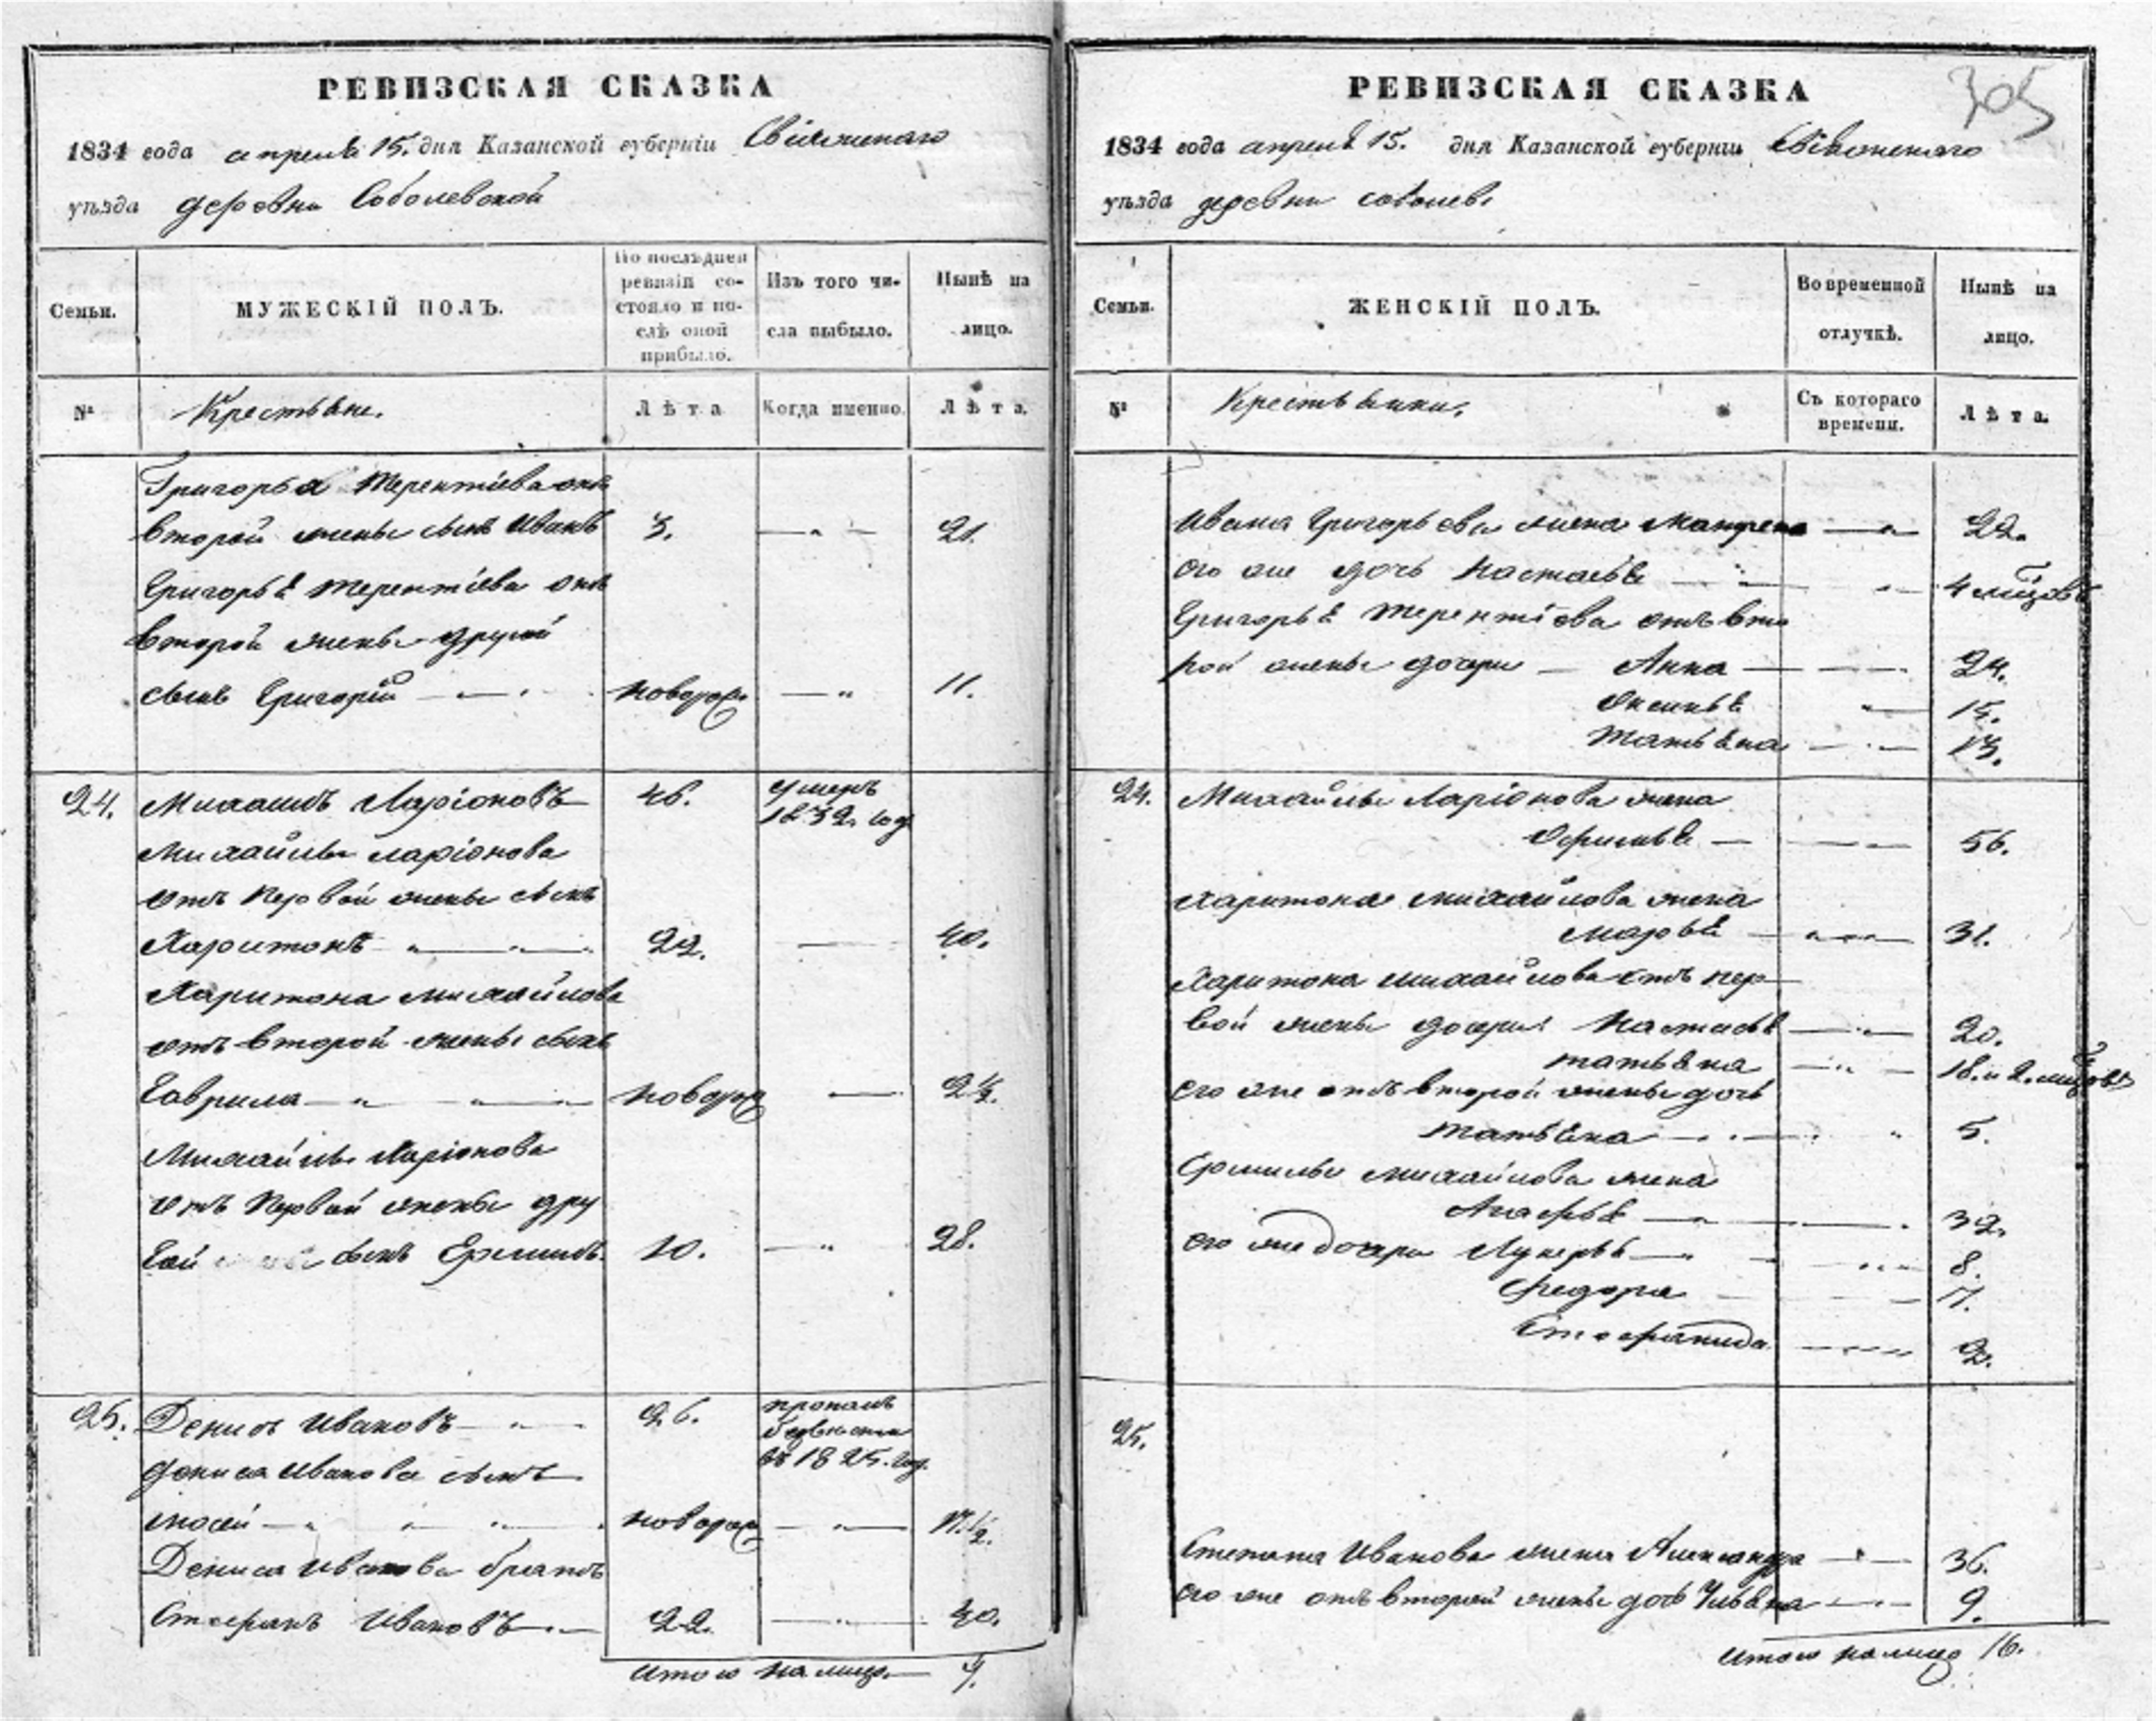 РЕВИЗСКАЯ СКАЗКА
1834 года апреля 15. дня Казанской губерніи Свіяжскаго
уѣзда деревни Соболевской
Семьи.
МУЖЕСКІЙ ПОЛЪ.
По послѣдней ревизіи состояло и послѣ оной прибыло.
Изъ того числа выбыло.
Нынѣ на лицо.
№
Крестьяне.
Лѣта
Когда именно.
Лѣта.
Григорья Терентіева отъ
второй жены сынъ Иванъ 3. 21.
Григорья Терентіева отъ
второй жены другой
сынъ Григорій новорож 11.
24. Михаилъ Ларіоновъ 46. умеръ 1832 год
Михайлы Ларіонова
отъ первой жены сынъ
Харитонъ 22. 40.
Харитона Михайлова
отъ второй жены сынъ
Гаврила новорож 2½.
Михайлы Ларіонова
отъ первой жены дру
гой сынъ Ермилъ. 10. 28.
25. Денисъ Ивановъ 26. пропалъ безвестно въ 1825. год.
Дениса Иванова сынъ
новорож 17.½.
Дениса Иванова братъ
Стефанъ Ивановъ 22. 40.
Итого на лицо 7.
РЕВИЗСКАЯ СКАЗКА
305
1834 года апреля 15. дня Казанской губерніи Свіяжскаго
уѣзда деревни Соболев.
Семьи.
ЖЕНСКІЙ ПОЛЪ.
Во временной отлучкѣ.
Нынѣ на лицо.
№
Крестьянки.
Съ котораго времени.
Лѣта.
Ивана Григорьева жена Матрена 22.
Его же дочь Настасья 4 мѣсцовъ
Григорья Терентіева отъ вто
рой жены дочери Анна 24.
Оксинья 15.
Татьяна 13.
24. Михайлы Ларіонова жена
Офимья 56.
Харитона Михайлова жена
Марья 31.
Харитона Михайлова отъ пер
вой жены дочери Настасья 20.
Татьяна 18. и 2. мѣсцовъ
Его же отъ второй жены дочь
Татьяна 5.
Ермилы Михайлова жена
Агафья 32.
Его же дочери Лукерья 8.
Федора 7.
Стефанида 2.
25.
Степана Иванова жена Александра 36.
Его же отъ второй жены дочь Ульяна 9.
Итого на лицо 16.